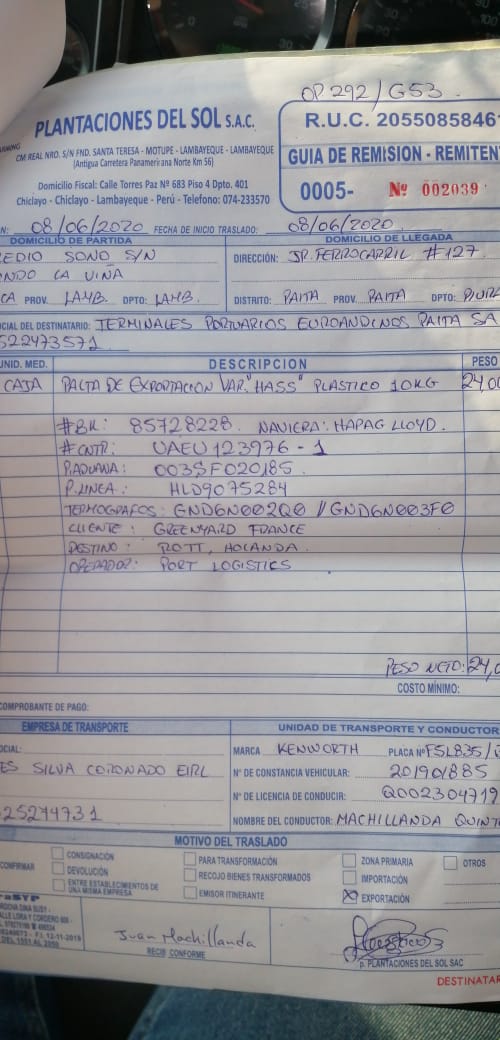 OP 292/G53
PLANTACIONES DEL SOL S.A.C.
CM REAL NRO. S/N FND. SANTA TERESA - MOTUPE - LAMBAYEQUE - LAMBAYEQUE
(Antigua Carretera Panamericana Norte Km 56)
Domicilio Fiscal: Calle Torres Paz Nº 683 Piso 4 Dpto. 401
Chiclayo - Chiclayo - Lambayeque - Perú - Telefono: 074-233570
R.U.C. 2055085846
GUIA DE REMISION - REMITEN
0005- Nº 002039
N: 08/06/2020 FECHA DE INICIO TRASLADO: 08/06/2020
DOMICILIO DE PARTIDA DOMICILIO DE LLEGADA
EDIO SONO S/N DIRECCIÓN: JR. FERROCARRIL #127
NDO LA VIÑA
CA PROV. LAMB. DPTO: LAMB. DISTRITO: PAITA PROV. PAITA DPTO: PIURA
CIAL DEL DESTINATARIO: TERMINALES PORTUARIOS EUROANDINOS PAITA SA
522473571
UNID. MED. DESCRIPCION PESO
CAJA PALTA DE EXPORTACION VAR. "HASS" PLASTICO 10KG 24,00
#BK: 85728228 NAVIERA: HAPAG LLOYD.
#CNTR: UAEU 123976 - 1
P.ADUANA: 003SF020185
P.LINEA: HLD9075284
TERMOGRAFOS: GND6N002Q0 // GND6N003F0
CLIENTE: GREENYARD FRANCE
DESTINO: ROTT, HOLANDA.
OPERADOR: PORT LOGISTICS
PESO NETO: 24,0
COSTO MÍNIMO:
COMPROBANTE DE PAGO:
EMPRESA DE TRANSPORTE UNIDAD DE TRANSPORTE Y CONDUCTOR
OCIAL: MARCA KENWORTH PLACA Nº F5L835/
ES SILVA CORONADO EIRL Nº DE CONSTANCIA VEHICULAR: 201901885
Nº DE LICENCIA DE CONDUCIR: Q002304719
25274731 NOMBRE DEL CONDUCTOR: MACHILLANDA QUINT
MOTIVO DEL TRASLADO
CONFIRMAR
CONSIGNACIÓN PARA TRANSFORMACIÓN ZONA PRIMARIA OTROS
DEVOLUCIÓN RECOJO BIENES TRANSFORMADOS IMPORTACIÓN
ENTRE ESTABLECIMIENTOS DE UNA MISMA EMPRESA EMISOR ITINERANTE EXPORTACIÓN
Juan Machillanda
RECIBI CONFORME
p. PLANTACIONES DEL SOL SAC
DESTINATAR